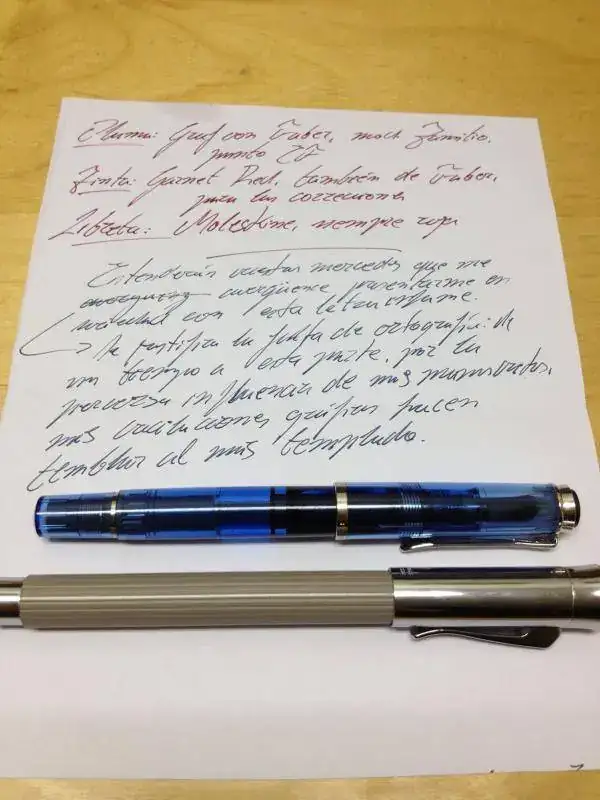 Pluma: Graf von Faber, mock Familie,
punto EF
Tinta: Garnet Red, también de Faber,
para las correcciones
Libreta: Moleskine, siempre roja
Entenderán vuestras mercedes que me
avergüence presentarme en
sociedad con esta letra infame.
→ Se justifica la falta de ortografía: de
un tiempo a esta parte, por la
perversa influencia de mis manuscritos,
mis vacilaciones grafías hacen
temblar al más templado.